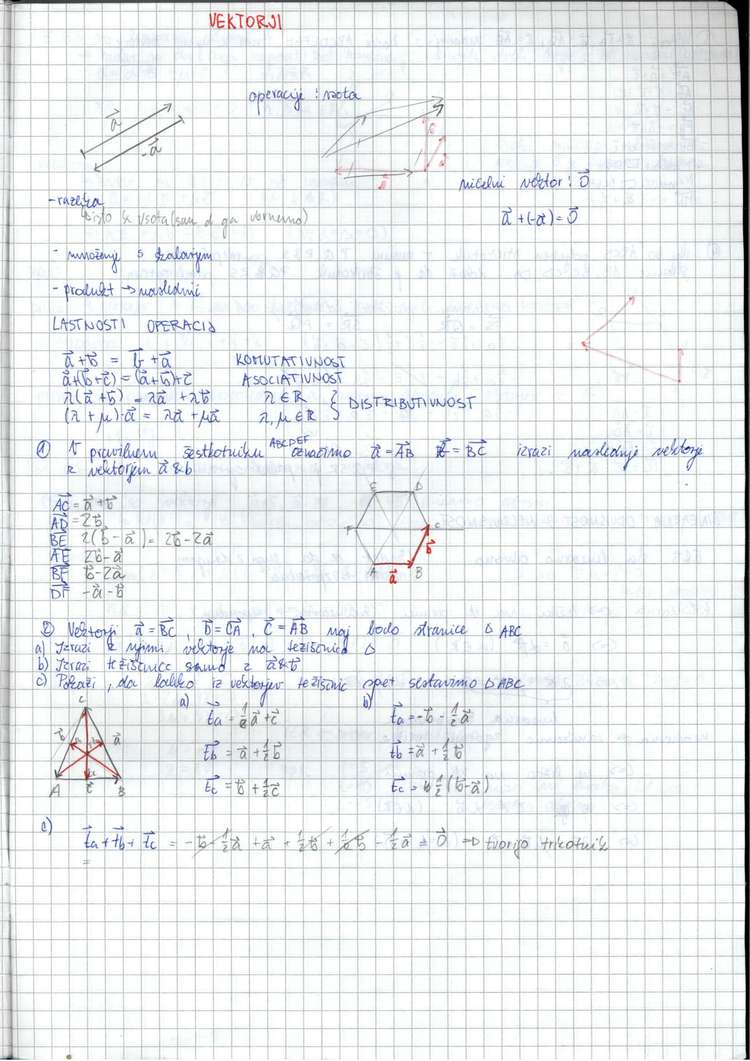 VEKTORJI
operacije : vsota
a⃗
-a⃗
ničelni vektor : 0⃗
a⃗ + (-a⃗) = 0⃗
- razlika
isto k vsota (sam d ga obrnemo)
- množenje s skalarjem
- produkt → naslednič
LASTNOSTI OPERACIJ
a⃗ + b⃗ = b⃗ + a⃗ KOMUTATIVNOST
a⃗ + (b⃗ + c⃗) = (a⃗ + b⃗) + c⃗ ASOCIATIVNOST
λ(a⃗ + b⃗) = λa⃗ + λb⃗ λ ∈ ℝ
(λ + μ)·a⃗ = λa⃗ + μa⃗ λ, μ ∈ ℝ } DISTRIBUTIVNOST
① V pravilnem šestkotniku ABCDEF označimo a⃗ = AB⃗ b⃗ = BC⃗ izrazi naslednje vektorje
z vektorjem a⃗ & b
AC⃗ = a⃗ + b⃗
AD⃗ = 2b⃗
BE⃗ 2(b⃗ - a⃗) = 2b⃗ - 2a⃗
AE⃗ 2b⃗ - a⃗
BF⃗ b⃗ - 2a⃗
DF⃗ -a⃗ - b⃗
E D
F C
A B
a⃗ b⃗
2) Vektorji a⃗ = BC⃗, b⃗ = CA⃗, c⃗ = AB⃗ naj bodo stranice △ ABC
a) Izrazi z njimi vektorje na težiščnica △
b) Izrazi težiščnice samo z a⃗ & b⃗
c) Pokaži, da lahko iz vektorjev težiščnic spet sestavimo △ ABC
C
b⃗ a⃗
A c⃗ B
a)
t⃗a = 1/2 a⃗ + c⃗
t⃗b = a⃗ + 1/2 b⃗
t⃗c = b⃗ + 1/2 c⃗
b)
t⃗a = -b⃗ - 1/2 a⃗
t⃗b = a⃗ + 1/2 b⃗
t⃗c = 1/2 (b⃗ - a⃗)
c)
t⃗a + t⃗b + t⃗c = -b⃗ - 1/2 a⃗ + a⃗ + 1/2 b⃗ + 1/2 b⃗ - 1/2 a⃗ = 0⃗ ⇒ tvorijo trikotnik
=